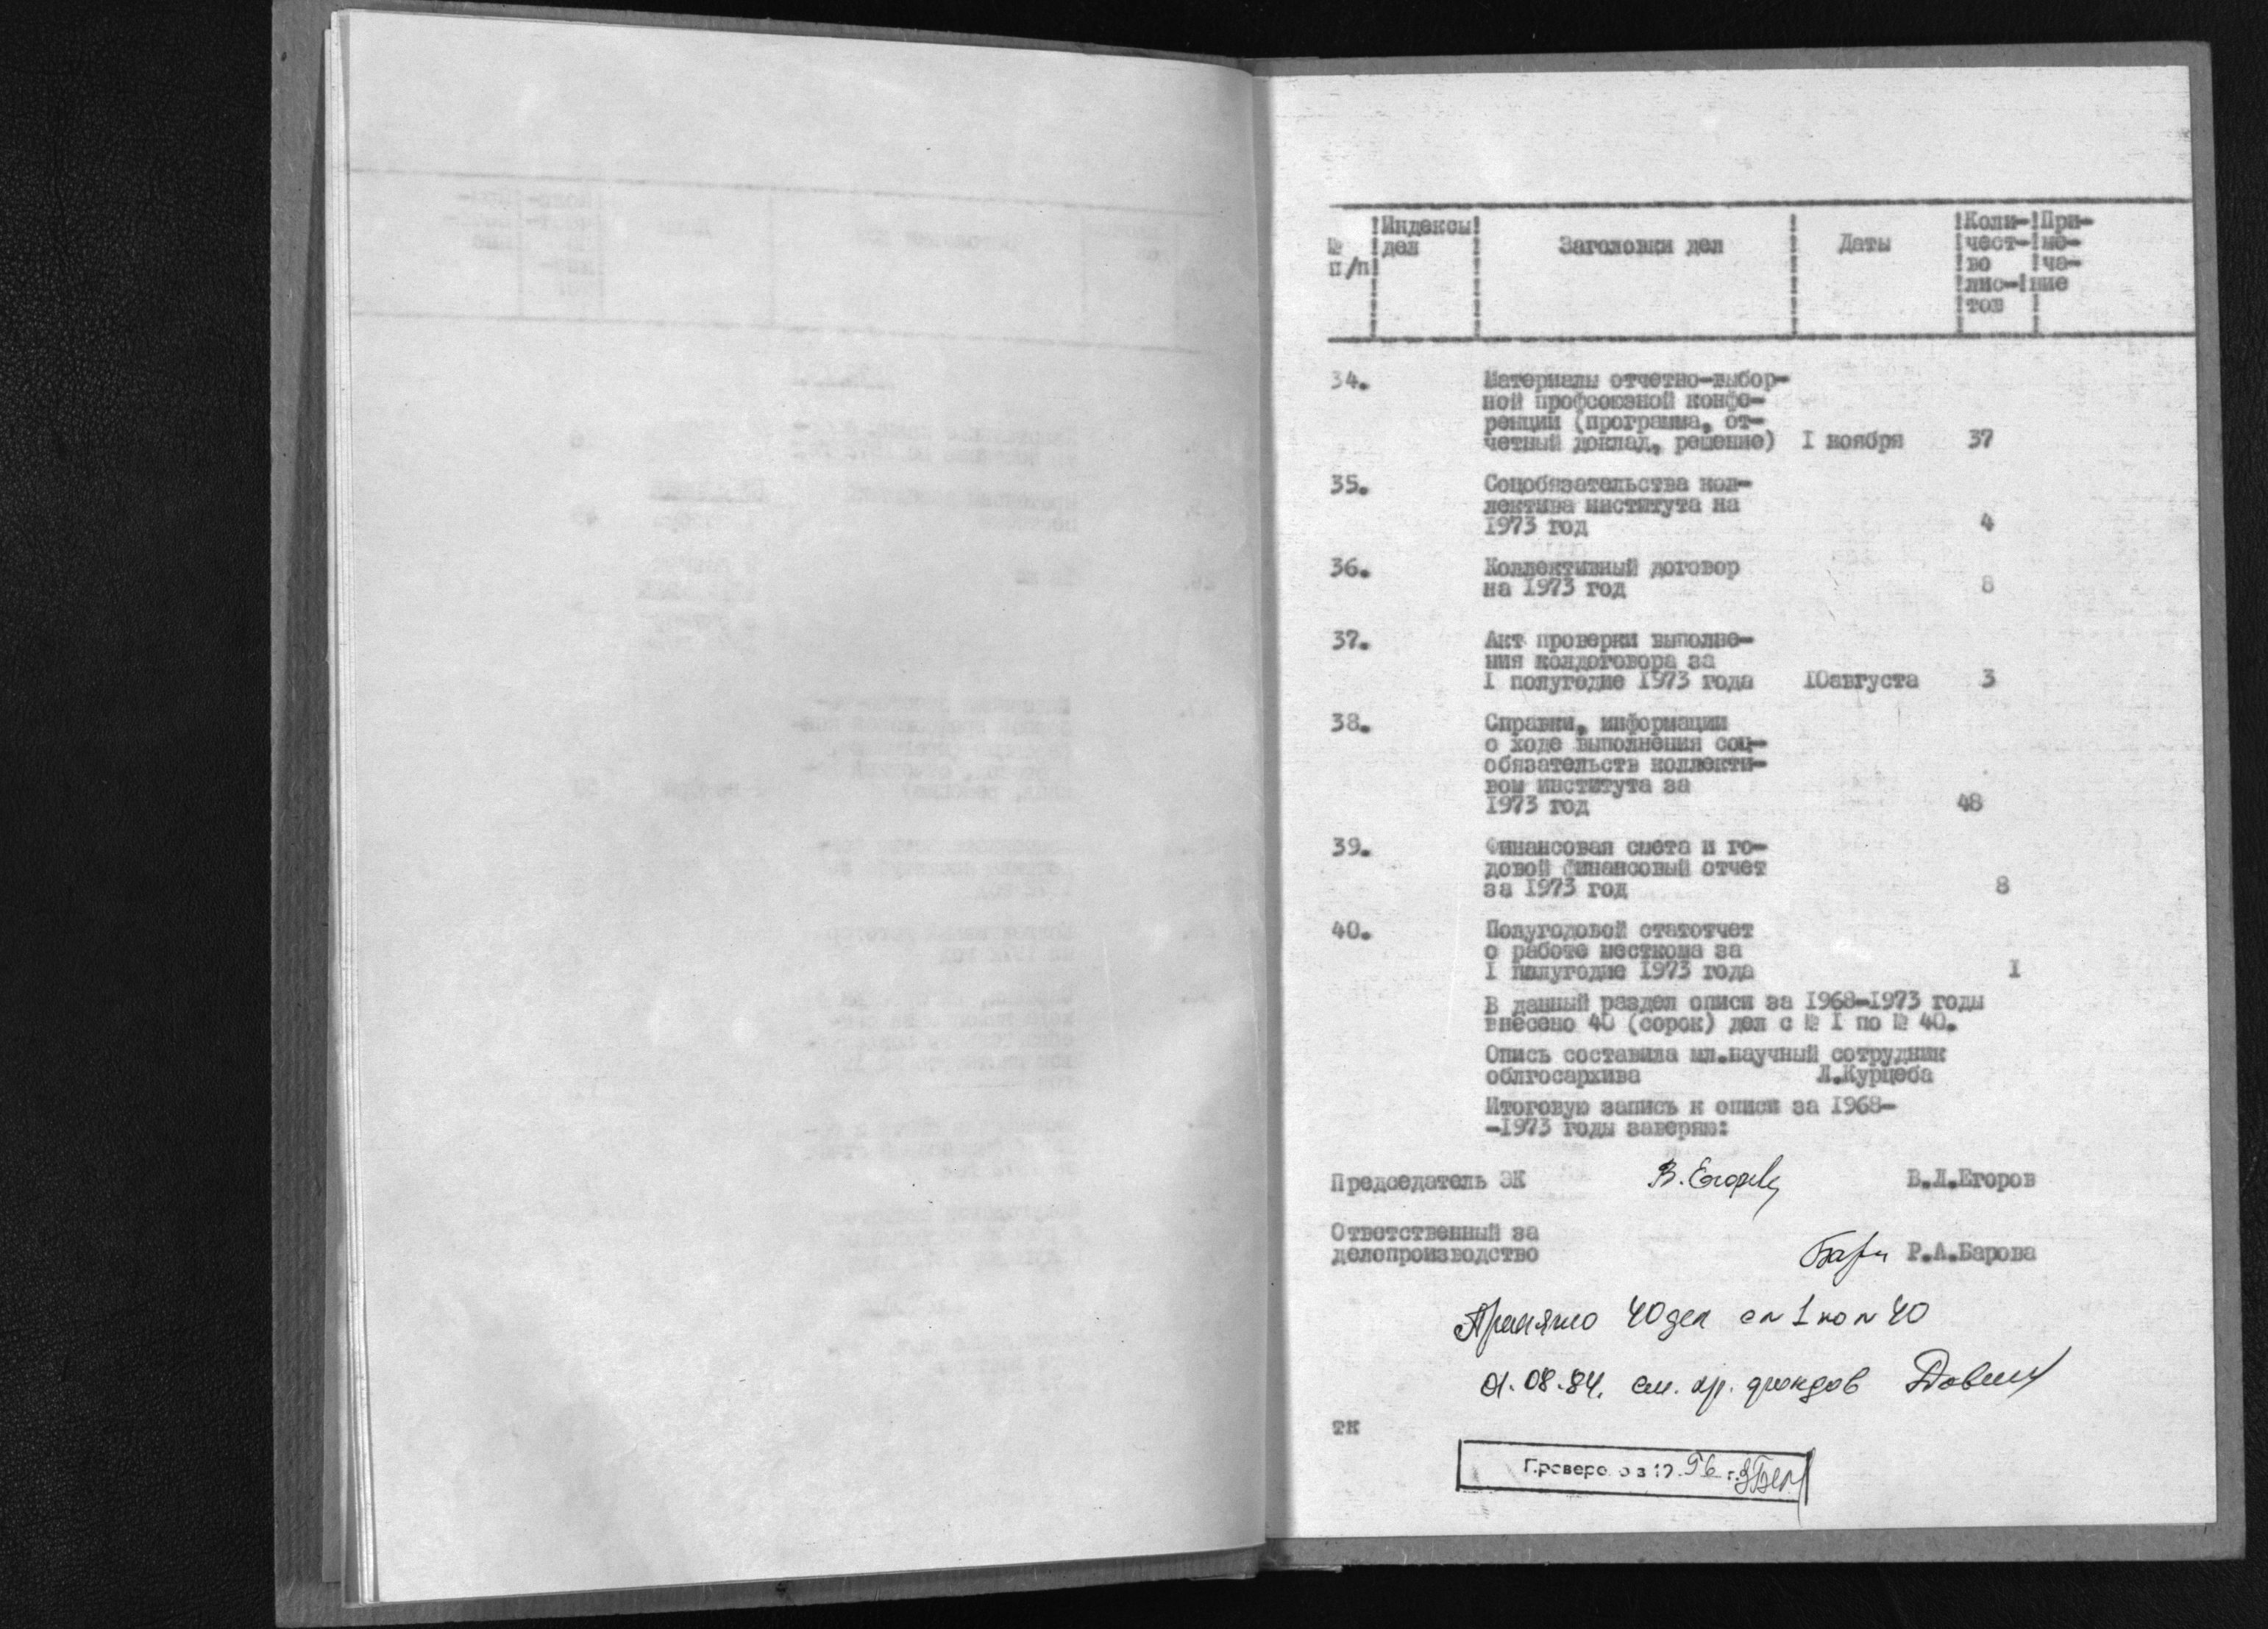 № п/п ! Индексы дел ! Заголовки дел ! Даты ! Коли-чест-во лис-тов ! При-ме-ча-ние
34. Материалы отчетно-выбор-
ной профсоюзной конфе-
ренции (программа, от-
четный доклад, решение) I ноября 37
35. Соцобязательства кол-
лектива института на
1973 год 4
36. Коллективный договор
на 1973 год 8
37. Акт проверки выполне-
ния колдоговора за
I полугодие 1973 года 10августа 3
38. Справки, информации
о ходе выполнения соц-
обязательств коллекти-
вом института за
1973 год 48
39. Финансовая смета и го-
довой финансовый отчет
за 1973 год 8
40. Полугодовой статотчет
о работе месткома за
I полугодие 1973 года I
В данный раздел описи за 1968-1973 годы
внесено 40 (сорок) дел с № I по № 40.
Опись составила мл.научный сотрудник
облгосархива Л.Курцеба
Итоговую запись к описи за 1968-
-1973 годы заверяю:
Председатель ЭК В. Егоров В.Л.Егоров
Ответственный за
делопроизводство Р.А.Барова
Принято 40 дел с n 1 по n 40
01.08.84. ст. хр. фондов
тк
Проверено в 1996 г.